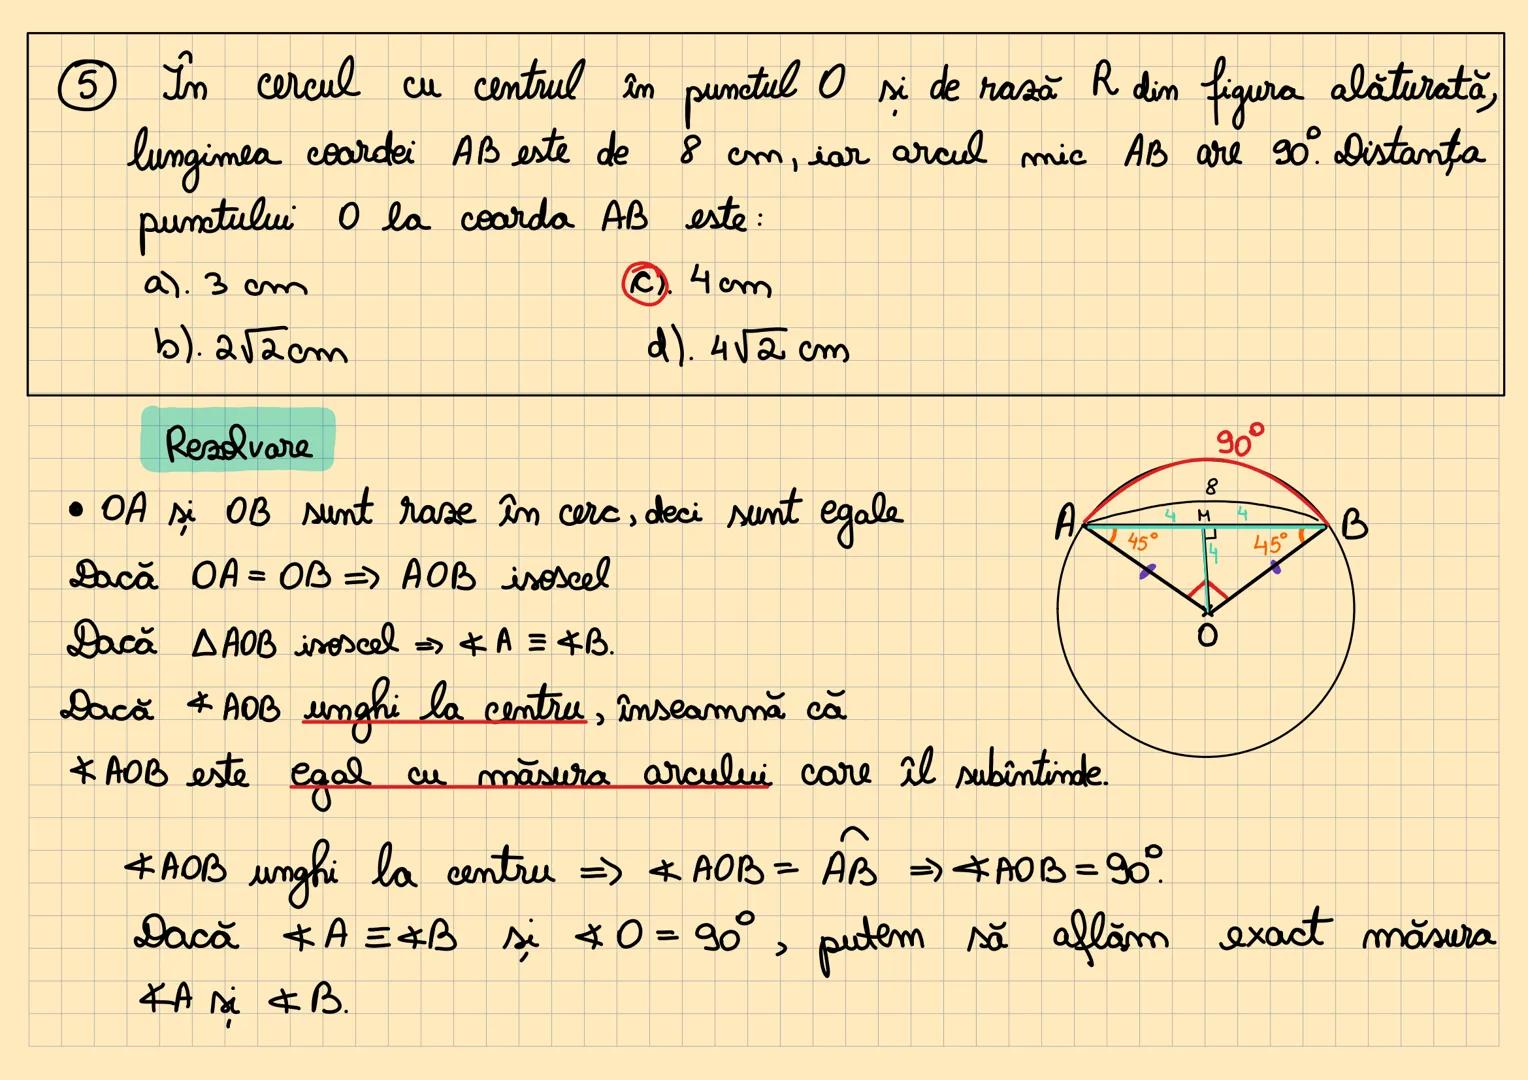 5 În cercul cu centrul în punctul O și de rază R din figura alăturată,
lungimea coardei AB este de 8 cm, iar arcul mic AB are 90°. Distanța
punctului O la coarda AB este:
a). 3 cm c). 4 cm
b). 2√2 cm d). 4√2 cm
Rezolvare
90°
8
A 4 M 4 B
45° 4 45°
O
• OA și OB sunt raze în cerc, deci sunt egale
Dacă OA = OB => AOB isoscel
Dacă △AOB isoscel => ∢A ≡ ∢B.
Dacă ∢AOB unghi la centru, înseamnă că
∢AOB este egal cu măsura arcului care îl subîntinde.
∢AOB unghi la centru => ∢AOB = A͡B => ∢AOB = 90°.
Dacă ∢A ≡ ∢B și ∢O = 90°, putem să aflăm exact măsura
∢A și ∢B.